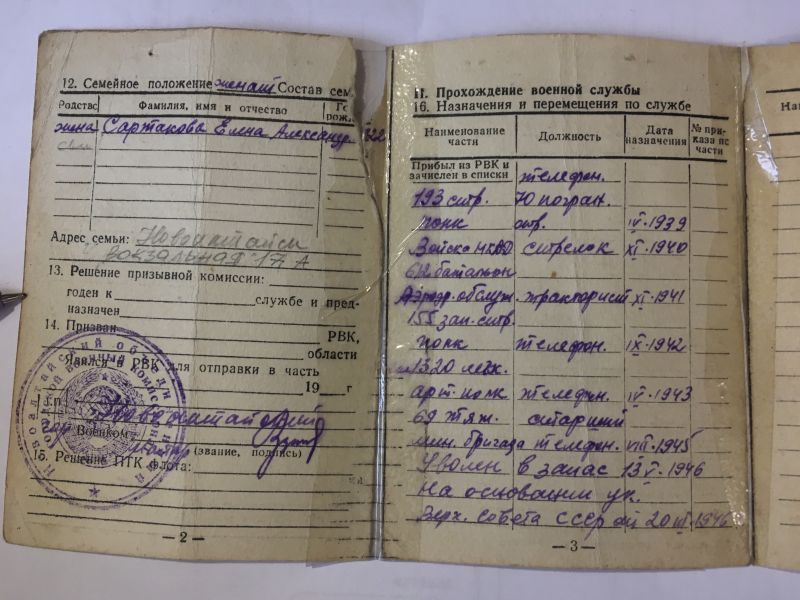 12. Семейное положение женат Состав сем
Родство Фамилия, имя и отчество
жена Сартакова Елена Александр. 22
Адрес семьи: Новоалтайск
вокзальная 17 А
13. Решение призывной комиссии:
годен к службе и пред-
назначен
14. Призван РВК,
области
Явился в РВК для отправки в часть
19 г
Военком
(звание, подпись)
15. Решение ПТК флота:
— 2 —
II. Прохождение военной службы
16. Назначения и перемещения по службе
Наименование части Должность Дата назначения № приказа по части
Прибыл из РВК и
зачислен в списки телефон.
193 стр. 70 погран.
полк отр. IV-1939
Войска НКВД стрелок XI-1940
612 батальон
Аэродр. обслуж. тракторист XI-1941
155 зап. стр.
полк телефон. IX-1942
1320 легк.
арт. полк телефон. IV-1943
69 тяж. старший
мин. бригада телефон. VIII-1945
Уволен в запас 13 V-1946
на основании ук.
Верх. Совета СССР от 20 III-1946
— 3 —